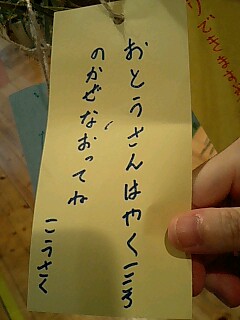 おとうさんはやくこころ
のかぜなおってね
こうさく